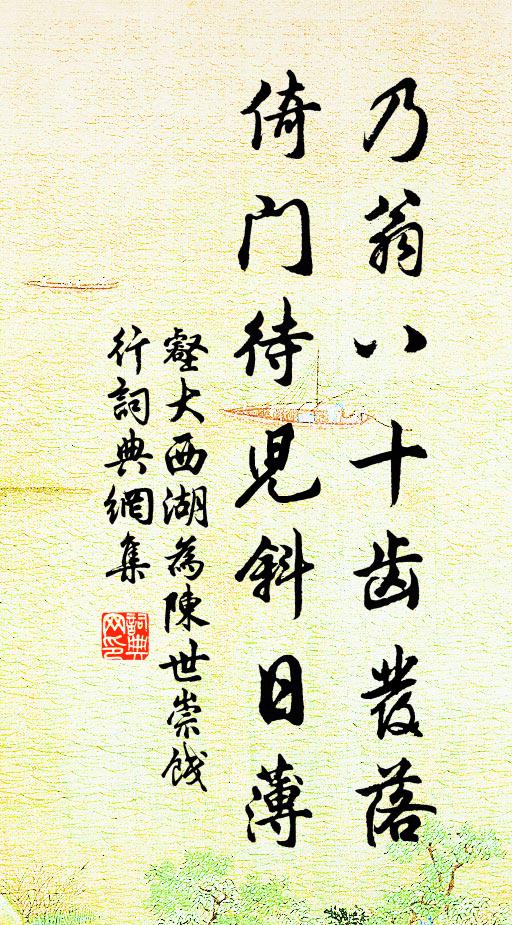 乃翁八十齿发落
倚门待儿斜日薄
壑大西湖為陳世崇餞
行詞典網集
詞典
网印